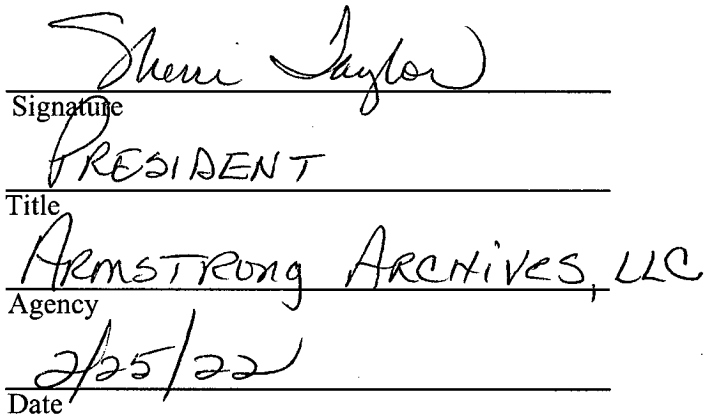 Sherri Taylor
Signature
PRESIDENT
Title
ARMSTRONG ARCHIVES, LLC
Agency
2/25/22
Date